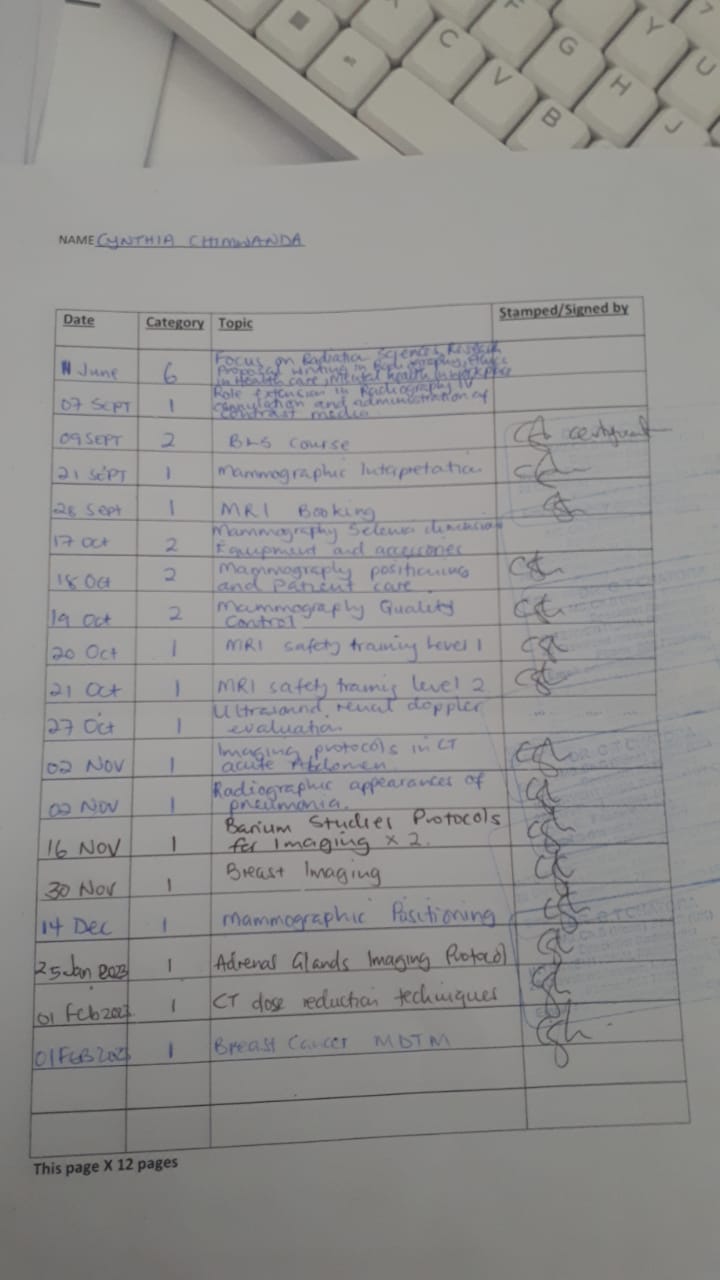 C
V
B
G
H
Y
U
J
NAME CYNTHIA CHIMWANDA
Date Category Topic Stamped/Signed by
11 June 6 Focus on Radiation Sciences, Research
Proposal writing in Radiography, Ethics
in Health care, Mental health in workplace
07 SEPT 1 Role extension in Radiography IV
cannulation and administration of
contrast media
09 SEPT 2 BLS course
21 SEPT 1 Mammographic Intepretation
28 Sept 1 MRI Booking
17 Oct 2 Mammography Selenia dimension
Equipment and accessories
18 Oct 2 Mammography positioning
and Patient care
19 Oct 2 Mammography Quality
Control
20 Oct 1 MRI safety training Level 1
21 Oct 1 MRI safety training level 2
27 Oct 1 Ultrasound renal doppler
evaluation
02 NOV 1 Imaging protocols in CT
acute Abdomen
02 NOV 1 Radiographic appearances of
pneumonia.
16 NOV 1 Barium Studies Protocols
for Imaging x 2.
30 Nov 1 Breast Imaging
14 Dec 1 Mammographic Positioning
25 Jan 2023 1 Adrenal Glands Imaging Protocol
01 Feb 2023 1 CT dose reduction techniques
01 FEB 2023 1 Breast Cancer MDTM
This page X 12 pages